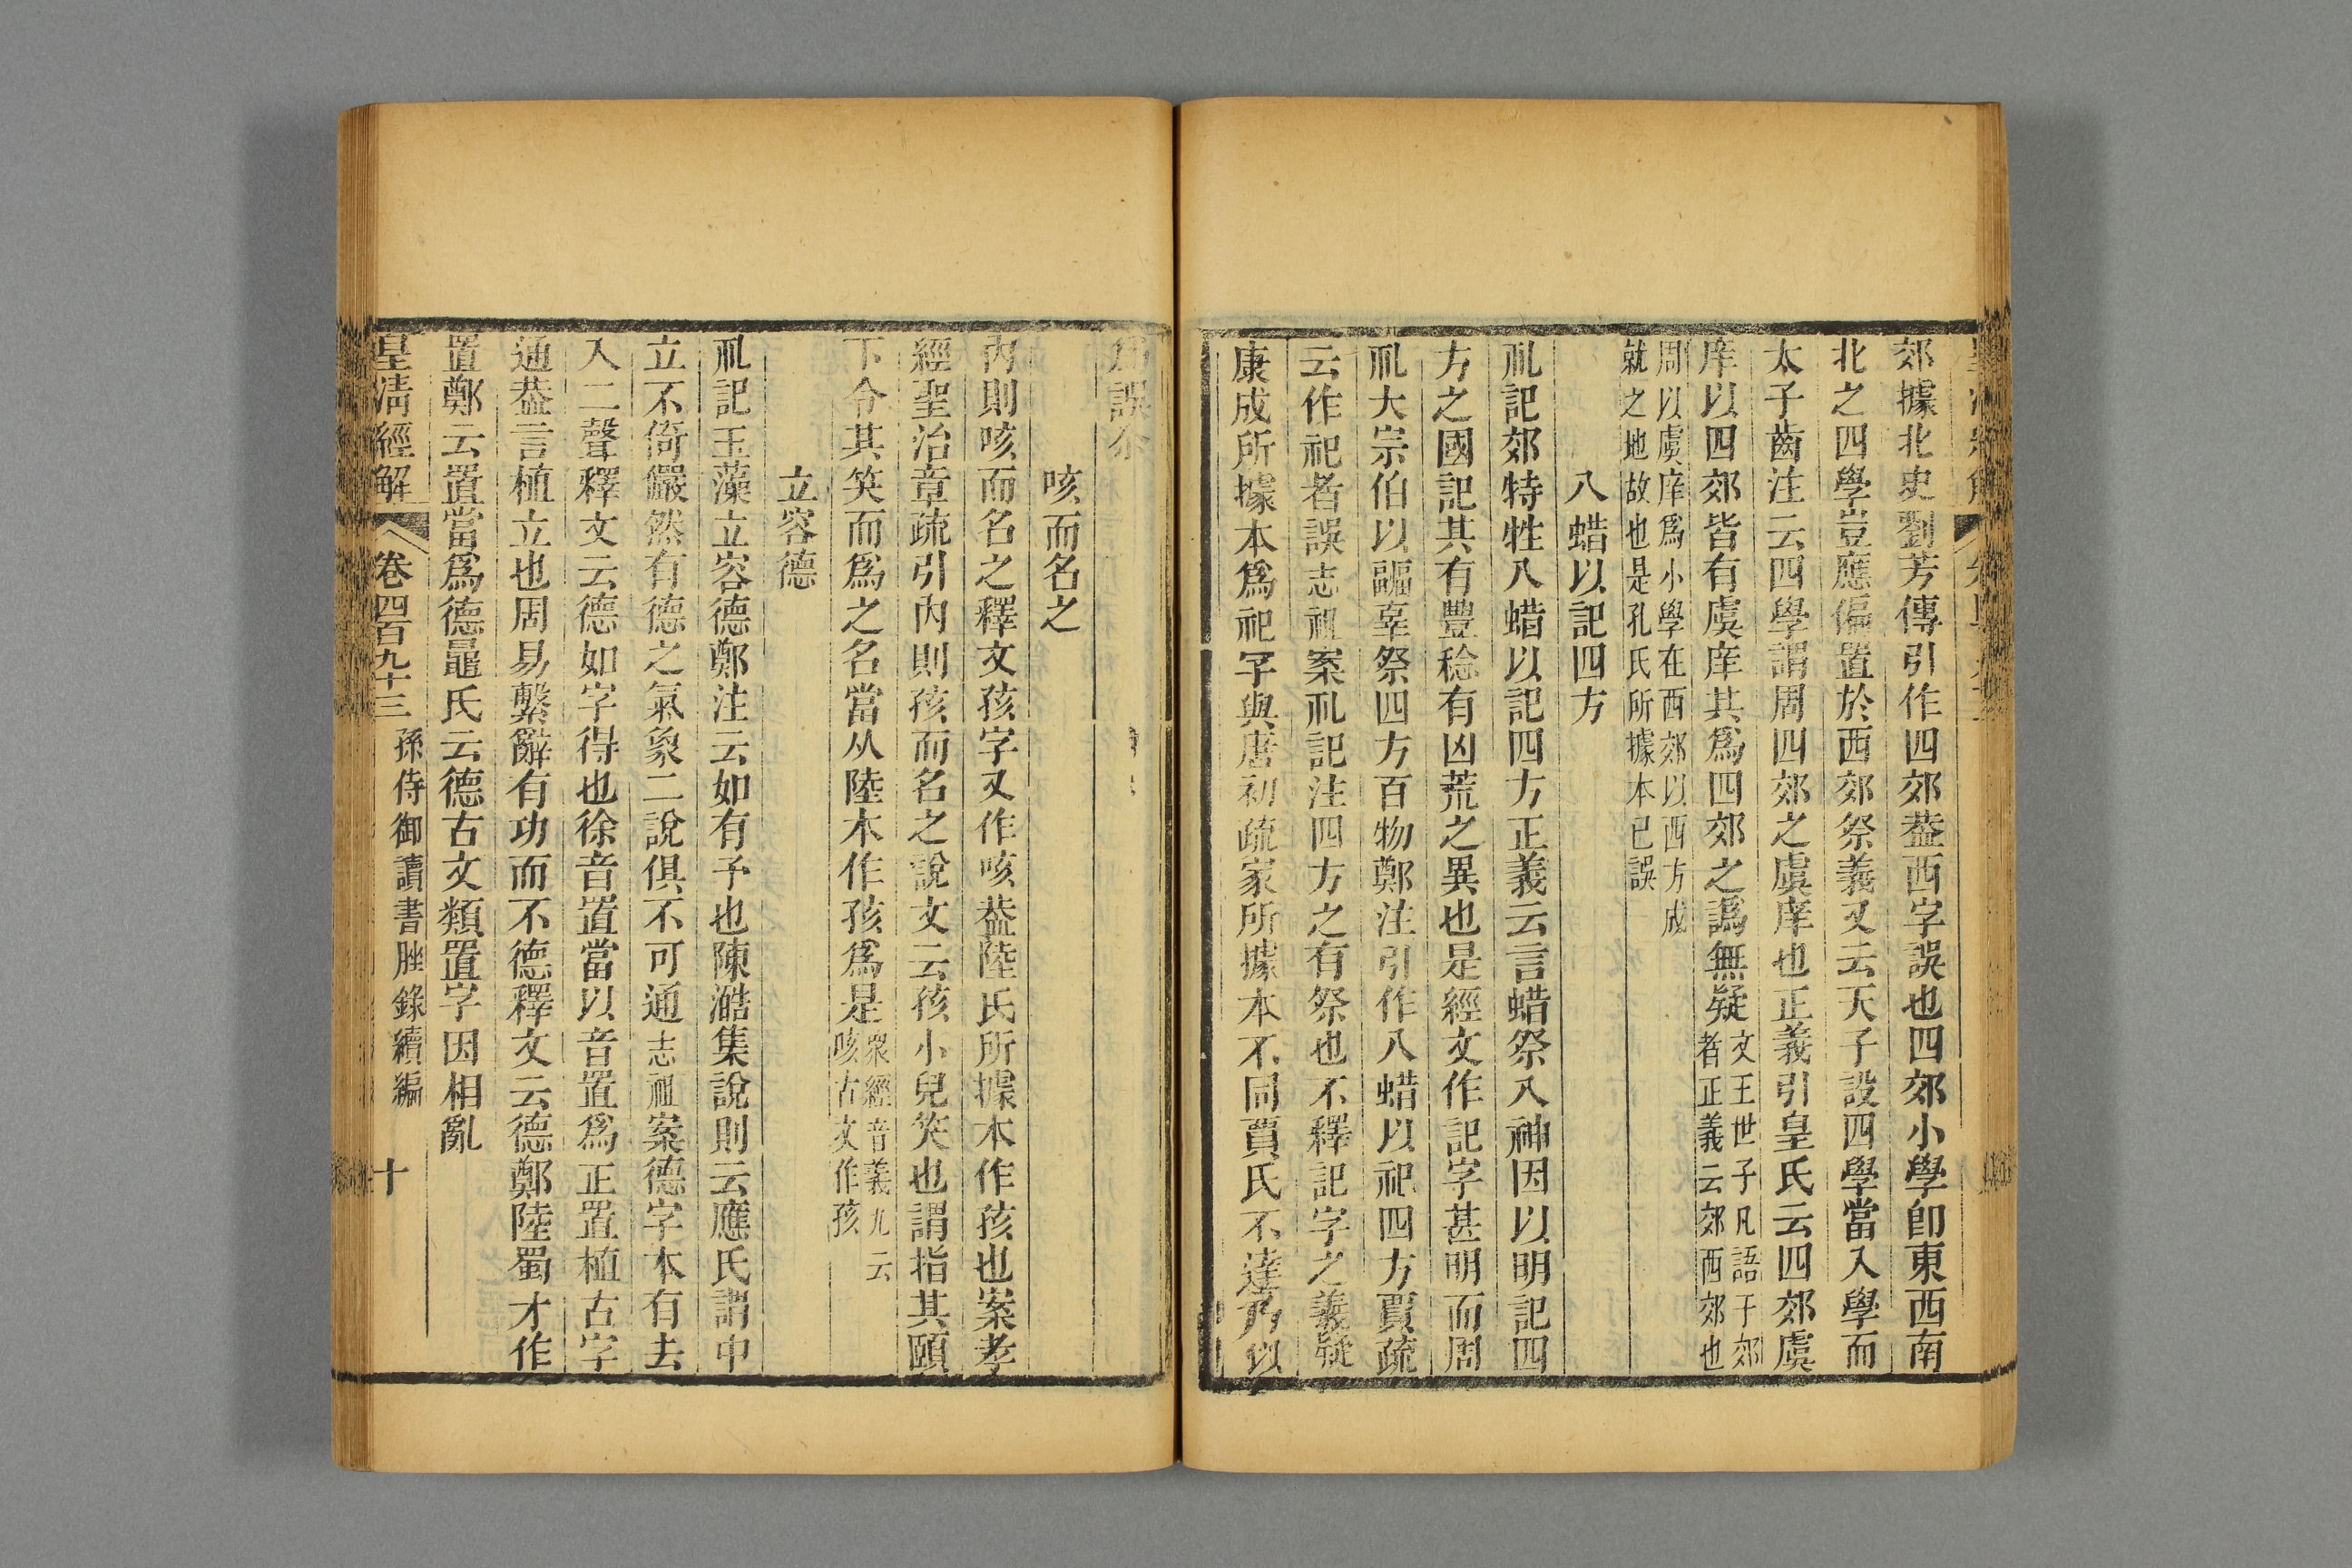 郊據北史劉芳傳引作四郊葢西字誤也四郊小學卽東西南
北之四學豈應偏置於西郊祭義又云天子設四學當入學而
太子齒注云四學謂周四郊之虞庠也正義引皇氏云四郊虞
庠以四郊皆有虞庠其爲四郊之譌無疑文王世子凡語于郊
者正義云郊西郊也
周以虞庠爲小學在西郊以西方成
就之地故也是孔氏所據本已誤
八蜡以記四方
礼記郊特牲八蜡以記四方正義云言蜡祭八神因以明記四
方之國記其有豐稔有凶荒之異也是經文作記字甚明而周
礼大宗伯以疈辜祭四方百物鄭注引作八蜡以祀四方賈疏
云作祀者誤志祖案礼記注四方之有祭也不釋記字之義疑
康成所據本爲祀字與唐初疏家所據本不同賈氏不達乃以
爲誤尒
咳而名之
內則咳而名之釋文孩字又作咳葢陸氏所據本作孩也案孝
經聖治章疏引內則孩而名之說文云孩小兒笑也謂指其頤
下令其笑而爲之名當从陸本作孩爲是眾經音義九云
咳古文作孩
立容德
礼記玉藻立容德鄭注云如有予也陳澔集說則云應氏謂中
立不倚儼然有德之氣象二說俱不可通志祖案德字本有去
入二聲釋文云德如字得也徐音置當以音置爲正置植古字
通葢言植立也周易繫辭有功而不德釋文云德鄭陸蜀才作
置鄭云置當爲德鼂氏云德古文類置字因相亂
皇清經解 卷四百九十三 孫侍御讀書脞錄續編 十